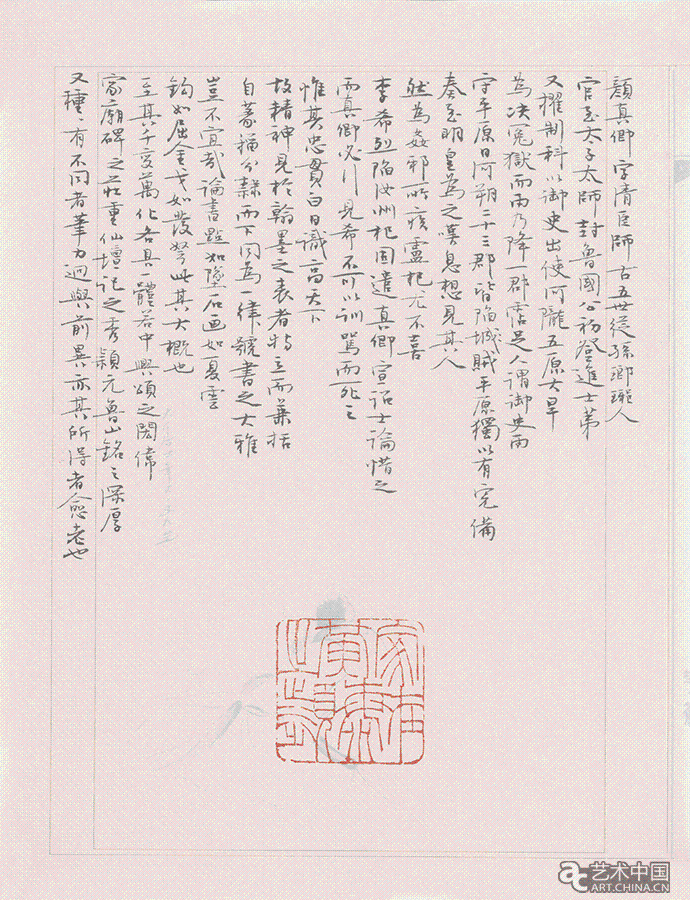 顏真卿字清臣師古五世從孫瑯琊人
官至太子太師封魯國公初登進士第
又擢制科以御史出使河隴五原大旱
為決冤獄而雨乃降一郡霑足人謂御史雨
守平原日河朔二十三郡皆陷賊平原獨以有完備
城
奏至明皇為之嘆息想見其人
然為姦邪所疾盧杞尤不喜
李希烈陷汝州杞固遣真卿宣詔士論惜之
而真卿必行見希不可以訓罵而死之
惟其忠貫白日識高天下
故精神見於翰墨之表者特立而兼括
自篆籀分隸而下同為一律號書之大雅
豈不宜哉論書點如墜石画如夏雲
鈎如屈金戈如發弩此其大概也
至其千變萬化各具一體若中興頌之閎偉
家廟碑之莊重仙壇記之秀穎元魯山銘之深厚
又種有不同者筆力迥與前異亦其所得者愈老也
艺术中国
ART.CHINA.CN